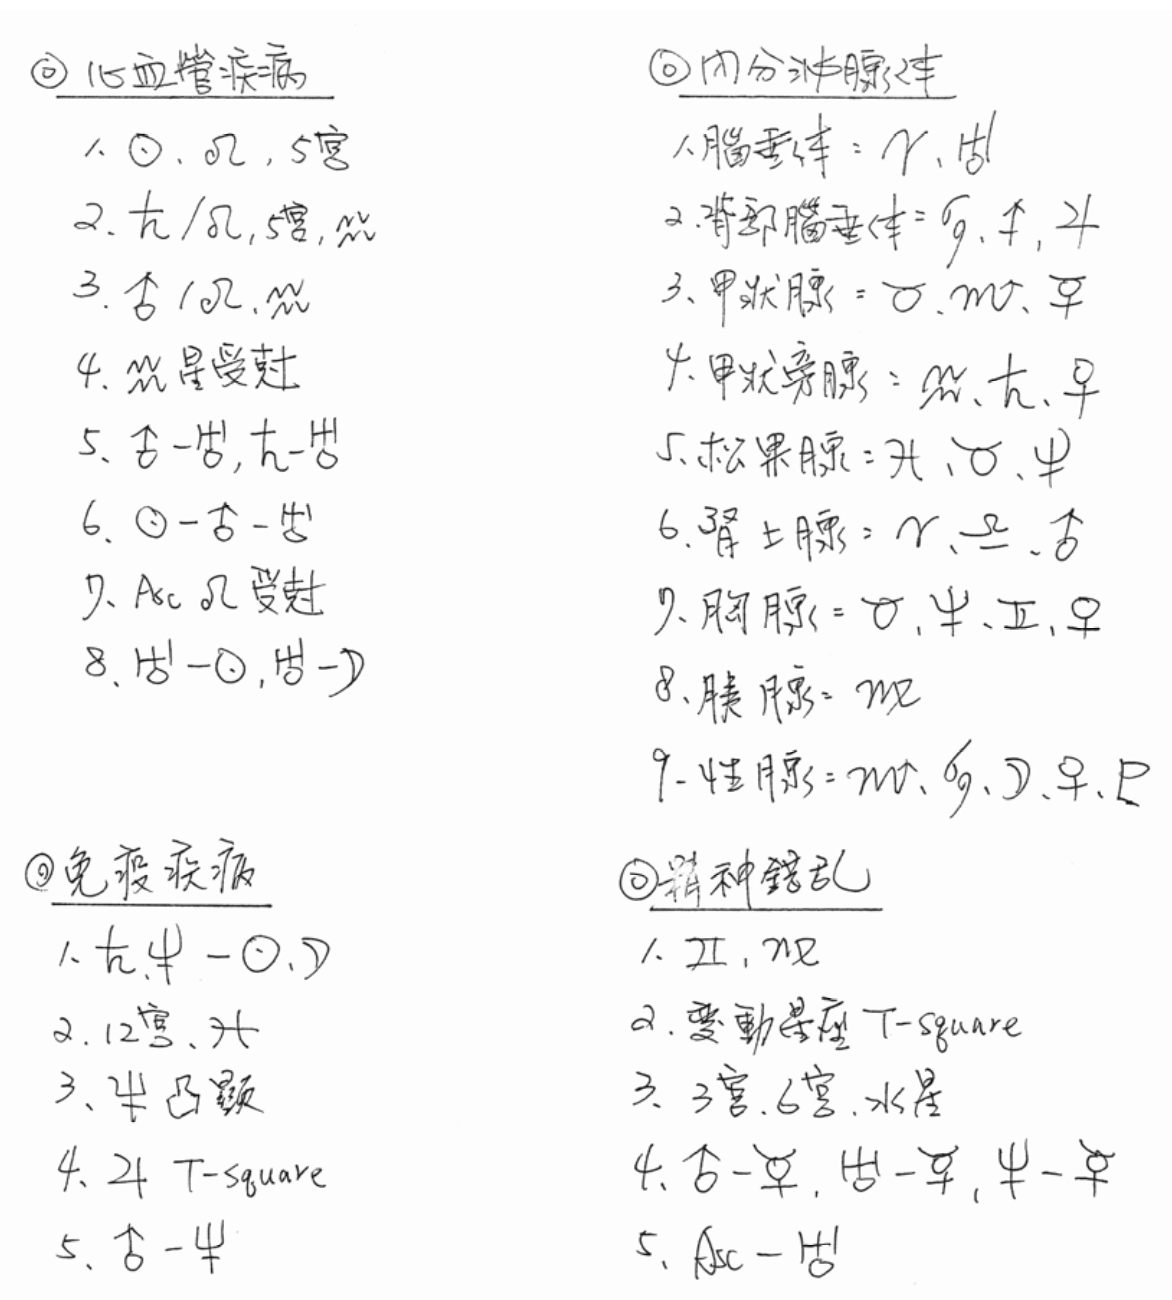 ◎心血管疾病
1、☉、♌,5宮
2.♄/♌,5宮,♒
3、♂/♌、♒
4、♒星受尅
5、♂-♅,♄-♅
6、☉-♂-♅
7、Asc ♌受尅
8、♅-☉,♅-☽
◎內分泌腺体
1、腦垂体：♈、♅
2.背部腦垂体=♋、♐、♃
3、甲狀腺=♉、♏、☿
4、甲狀旁腺=♒、♄、♀
5、松果腺=♓、♉、♆
6、腎上腺=♈、♎、♂
7、胸腺=♉、♆、♊、♀
8、胰腺=♍
9-性腺=♏、♋、☽、♀、♇
◎免疫疾病
1、♄、♆-☉、☽
2.12宮、♓
3、♆凸顯
4、♃ T-square
5、♂-♆
◎精神錯乱
1、♊,♍
2.變動星座 T-square
3、3宮、6宮、水星
4、♂-☿,♅-☿,♆-☿
5、Asc-♅